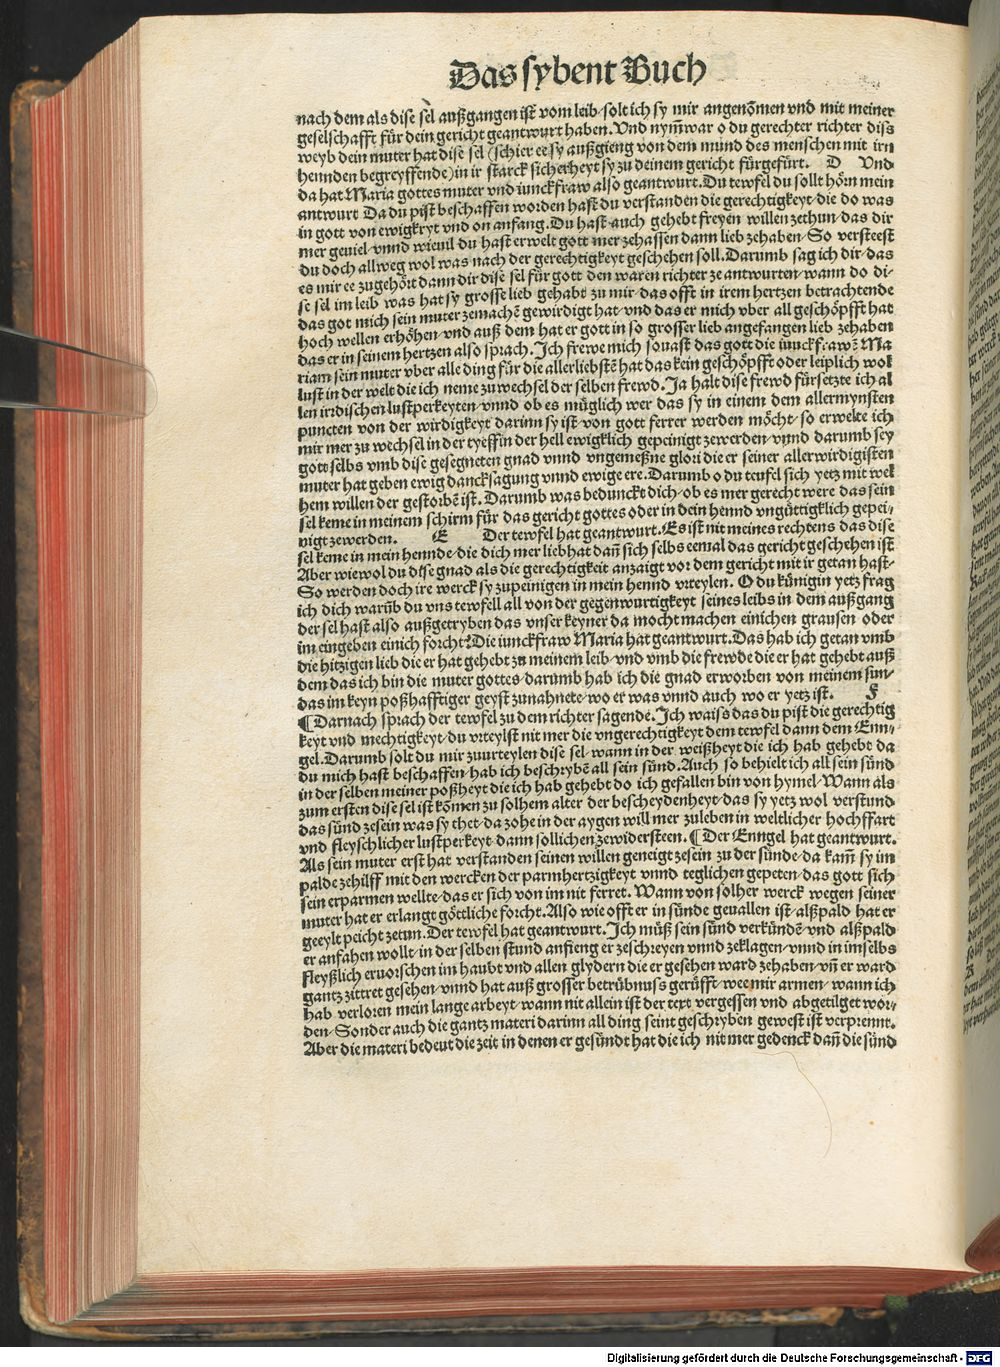 Das sybent Buch
nach dem als dise sel außgangen ist vom leib/solt ich sy mir angenom̄en vnd mit meiner
geselschafft für dein gericht geantwurt haben. Vnd nym̄war o du gerechter richter diss
weyb dein muter hat dise sel (schier ee sy außgieng von dem mund des menschen mit irn
hennden begreyffende) in ir starck sicherheyt sy zu deinem gericht fürgefürt. D Vnd
da hat Maria gottes muter vnd iunckfraw also geantwurt. Du tewfel du sollt hörn mein
antwurt Da du pist beschaffen worden hast du verstanden die gerechtigkeyt/die do was
in gott von ewigkryt vnd on anfang. Du hast auch gehebt freyen willen zethun/das dir
mer geuiel/vnnd wieuil du hast erwelt gott mer zehassen dann lieb zehaben/So versteest
du doch allweg wol was nach der gerechtigkeyt geschehen soll. Darumb sag ich dir/das
es mir ee zugehört dann dir dise sel für gott den waren richter ze antwurten/wann do di-
se sel im leib was hat sy grosse lieb gehabt zu mir/das offt in irem hertzen betrachtende
das got mich sein muter zemachē gewirdigt hat/vnd das er mich vber all geschöpfft hat
hoch wellen erhöhen/vnd auß dem hat er gott in so grosser lieb angefangen lieb zehaben
das er in seinem hertzen also sprach. Ich frewe mich souast das gott die iunckfrawē Ma
riam sein muter vber alle ding für die allerliebstē hat das kein geschöpfft oder leiplich wol
lust in der welt die ich neme zu wechsel der selben frewd. Ja halt dise frewd fürsetzte ich al
len irdischen lustperkeyten/vnnd ob es müglich wer das sy in einem dem allermynsten
puncten von der wirdigkeyt darinn sy ist von gott ferrer werden möcht/so erwelte ich
mir mer zu wechsel in der tyeffin der hell ewigklich gepeinigt zewerden/vnnd darumb sey
gott selbs vmb dise gesegneten gnad vnnd vngemeßne glori die er seiner allerwirdigisten
muter hat geben ewig dancksagung vnnd ewige ere. Darumb o du teufel sich yetz mit wel
hem willen der gestorbē ist. Darumb was bedunckt dich/ob es mer gerecht were das sein
sel keme in meinem schirm für das gericht gottes oder in dein hennd vngüttigklich gepei-
nigt zewerden. E Der tewfel hat geantwurt. Es ist nit meines rechtens das dise
sel keme in mein hennde/die dich mer lieb hat dan̄ sich selbs eemal das gericht geschehen ist
Aber wiewol du dise gnad als die gerechtigkeit anzaigt vor dem gericht mit ir getan hast/
So werden doch ire werck sy zupeinigen in mein hennd vrteylen. O du künigin yetz frag
ich dich warūb du vns tewfell all von der gegenwurtigkeyt seines leibs in dem außgang
der sel hast also außgetryben das vnser keyner da mocht machen einichen grausen oder
im eingeben einich forcht? Die iunckfraw Maria hat geantwurt. Das hab ich getan vmb
die hitzigen lieb die er hat gehebt zu meinem leib/vnd vmb die frewde die er hat gehebt auß
dem das ich bin die muter gottes/darumb hab ich die gnad erworben von meinem sun/
das im keyn poßhafftiger geyst zunahnete/wo er was vnnd auch wo er yetz ist. F
¶ Darnach sprach der tewfel zu dem richter sagende. Ich waiss das du pist die gerechtig
keyt vnd mechtigkeyt/du vrteylst nit mer die vngerechtigkeyt dem tewfel dann dem Enn-
gel. Darumb solt du mir zuurteylen dise sel/wann in der weißheyt die ich hab gehebt da
du mich hast beschaffen/hab ich beschrybē all sein sünd. Auch so behielt ich all sein sünd
in der selben meiner poßheyt die ich hab gehebt do ich gefallen bin von hymel/Wann als
zum ersten dise sel ist kōmen zu solhem alter der bescheydenheyt/das sy yetz wol verstund
das sünd zesein was sy thet/da zohe in der aygen will mer zuleben in weltlicher hochffart
vnd fleyschlicher lustperkeyt/dann sollichen zewidersteen. ¶ Der Enngel hat geantwurt.
Als sein muter erst hat verstanden seinen willen geneigt zesein zu der sünde/da kam̄ sy im
palde zehilff mit den wercken der parmhertzigkeyt vnnd teglichen gepeten/das gott sich
sein erparmen wellte/das er sich von im nit ferret. Wann von solher werck wegen seiner
muter hat er erlangt göttliche forcht. Also wie offt er in sünde geuallen ist/alßpald hat er
geeylt peicht zetun. Der tewfel hat geantwurt. Ich müß sein sünd verkündē/vnd alßpald
er anfahen wollt/in der selben stund anfieng er zeschreyen vnnd zeklagen/vnnd in im selbs
fleyßlich eruorschen im haubt vnd allen glydern die er gesehen ward zehaben/vn̄ er ward
gantz zittret gesehen/vnnd hat auß grosser betrübnuss gerüfft/wee mir armen/wann ich
hab verloren mein lange arbeyt/wann nit allein ist der text vergessen vnd abgetilget wor-
den/Sonder auch die gantz materi darinn all ding seint geschryben gewest ist verprennt.
Aber die materi bedeut die zeit in denen er gesündt hat die ich nit mer gedenck dan̄ die sünd
Digitalisierung gefördert durch die Deutsche Forschungsgemeinschaft - DFG